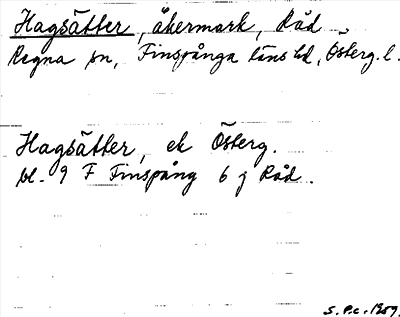 Hagsätter, åkermark, Råd
Regna sn, Finspånga läns hd, Österg. l.
Hagsätter, ek Österg.
bl. 9 F Finspång 6 j Råd.
S. P.c. 1959.